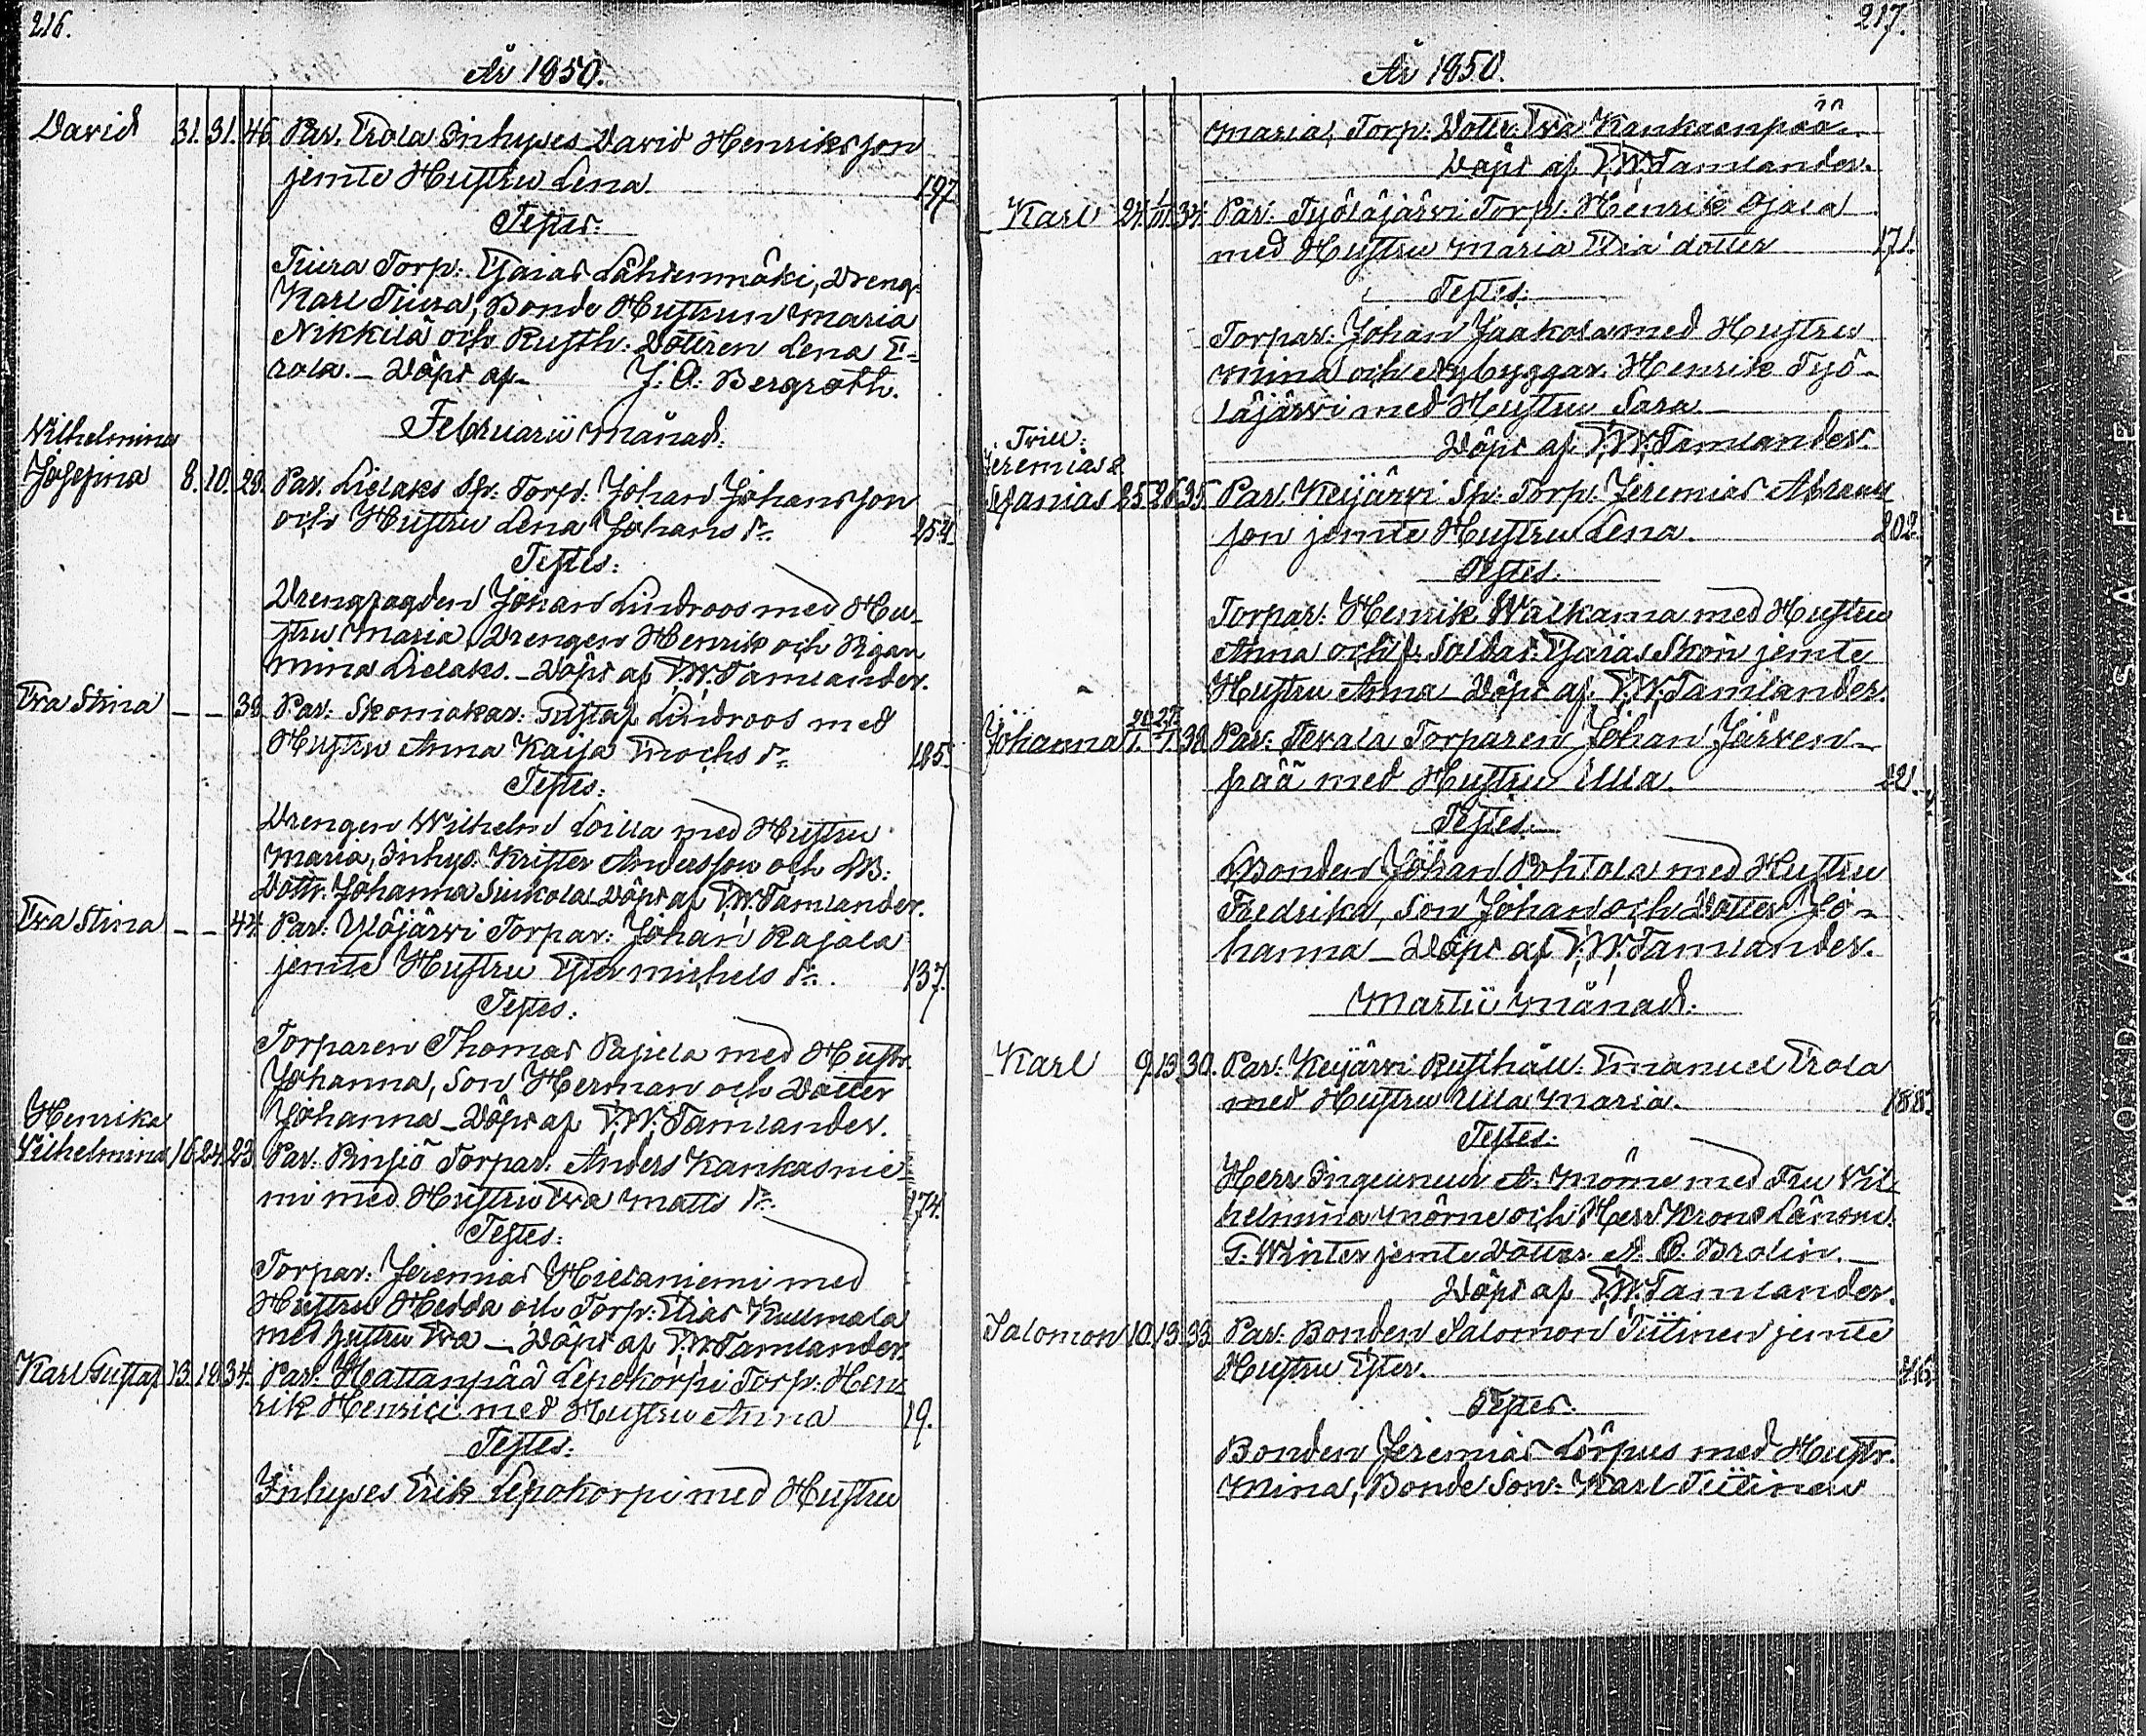 216.
År 1850.
David 31. 31. 46 Par. Erola Inhyses David Henriksson
jemte Hustru Lena 197
Testes:
Tiura Torp: Esaias Lähteenmäki, Dreng.
Karl Tiura, Bonde Hustrun Maria
Nikkilä och Rusth: Dottren Lena E=
rola. – Döpt af J. O. Bergroth.
Februarii månad.
Vilhelmina
Josefina 8. 10. 29. Par. Lielaks Sp: Torp: Johan Johansson
och Hustru Lena Johans dr. 254.
Testes:
Drengfogden Johan Lindroos med Hu-
stru Maria, Drengen Henrik och Pigan
Mina Lielaks. – Döpt af F. W. Tamlander.
Eva Stina – – 38 Par. Skomakar: Gustaf Lindroos med
Hustru Anna Kaisa Enochs dr. 185.
Testes:
Drengen Wilhelm Loilla med Hustru
Maria, Inhys. Krister Andersson och
Dottr. Johanna Siukola Döpt af F. W. Tamlander.
Eva Stina – – 44. Par: Ylöjärvi Torpar: Johan Rajala
jemte Hustru Ester Michels dr. 137.
Testes:
Torparen Thomas Pajula med Hustr.
Johanna, Son Herman och Dotter
Johanna – Döpt af F. W. Tamlander.
Henrika
Vilhelmina 16. 24. 23. Par: Pinsiö Torpar. Anders Kankasnie-
mi med Hustru Eva Matts dr. 174.
Testes:
Torpar. Jeremias Hietaniemi med
Hustru Hedda och Torp: Elias Kullmala
med hustru Eva – Döpt af F. W. Tamlander.
Karl Gustaf 13. 18. 34. Par. Mattanpää Lepokorpi Torp: Hen
rik Henrici med Hustru Anna 19.
Testes:
Inhyses Erik Lepokorpi med Hustru
217.
År 1850.
Maria, Torp: Dottr. Eva Kankaanpää.
Döpt af F. W. Tamlander.
Karl 24. 34. Par. Työläjärvi Torp. Henrik Ojala
med Hustru Maria Elia dotter 171.
Testes:
Torpar. Johan Jaakola med Hustru
Mina och Nybyggar. Henrik Työ-
läjärvi med Hustru Sara. –
Döpt af F. W. Tamlander.
Jeremias &
25. 26. 35. Par. Keijärvi Sp: Torp. Jeremias
son jemte Hustru Lena. 202.
Testes:
Torpar: Henrik Walkama med Hustru
Anna och f. Soldat: Esaias Skön jemte
Hustru Anna – Döpt af F. W. Tamlander.
Johanna 38. Par: Tevala Torparen Johan Järven-
pää med Hustru Ulla. 221.
Testes:
Bonden Johan Pohtola med Hustru
Fredrika, Son Johan och Dotter Jo-
hanna – Döpt af F. W. Tamlander.
Martii månad.
Karl 9. 13. 30. Par: Keijärvi Rusthåll: Emanuel Erola
med Hustru Ulla Maria. 188.
Testes:
Herr Ingeuneur A. Mörne med Fru Vil
helmina Mörne och Herr Krono Länsm.
G. Winter jemte Dottr. A. C. Brolin. –
Döpt af F. W. Tamlander.
Salomon 10. 13. 33. Par: Bonden Salomon Tiitinen jemte
Hustru Ester.
Testes:
Bonden Jeremias Lörpus med Hustr.
Mina, Bonde Son: Karl Tiitinen
KODAK SAFETY